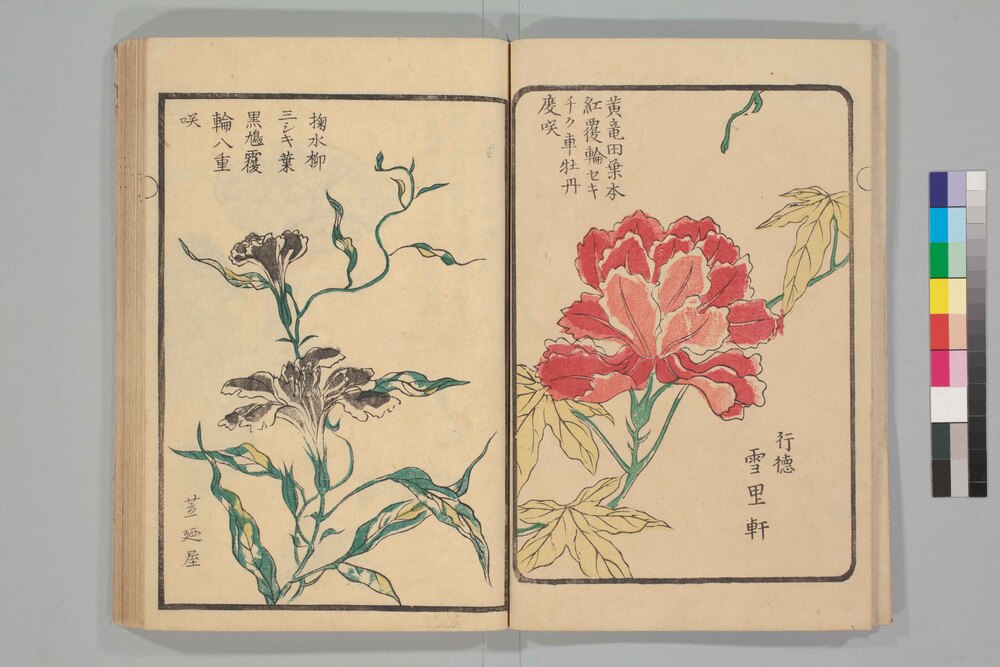 黄竜田葉本
紅覆輪セキ
千ク車牡丹
度咲
行徳
雪里軒
掬水柳
三シキ葉
黒鳩覆
輪八重
咲